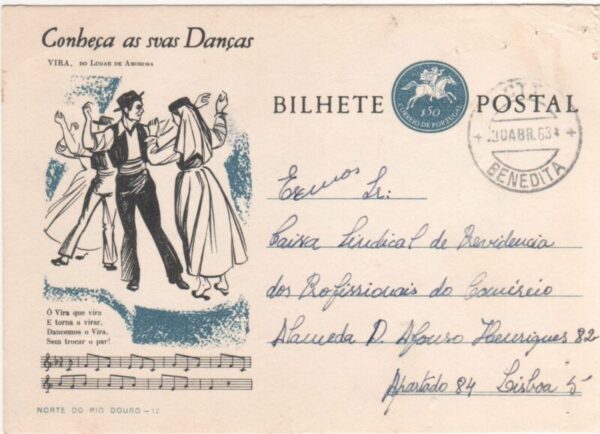 Conheça as suas Danças
VIRA, DO LUGAR DE AMOROSA
BILHETE POSTAL
$50
CORREIO DE PORTUGAL
CTT
30ABR.63
BENEDITA
Exmos Sr:
Caixa Sindical de Previdencia
dos Profissionais do Comércio
Alameda D. Afonso Henriques 82
Apartado 84 Lisboa 5
Ó Vira que vira
E torna a virar,
Dancemos o Vira,
Sem trocar o par!
NORTE DO RIO DOURO – 12